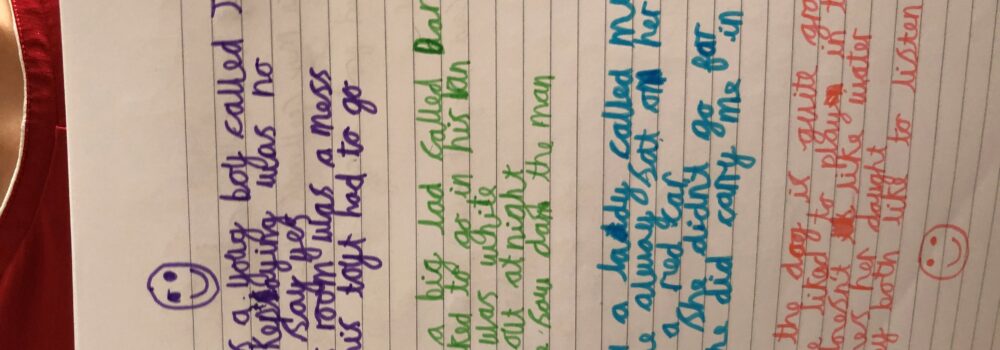 a young boy called J
was no
Say yes
room was a mess
his toys had to go
a big lad called Dan
ked to go in his van
was white
out at night
Saw dan the man
a lady called
always sat on her
a red car
She didnt go far
he did carry me in
the dog is quite
liked to play in
doesn't like water
her daught
y both like to listen